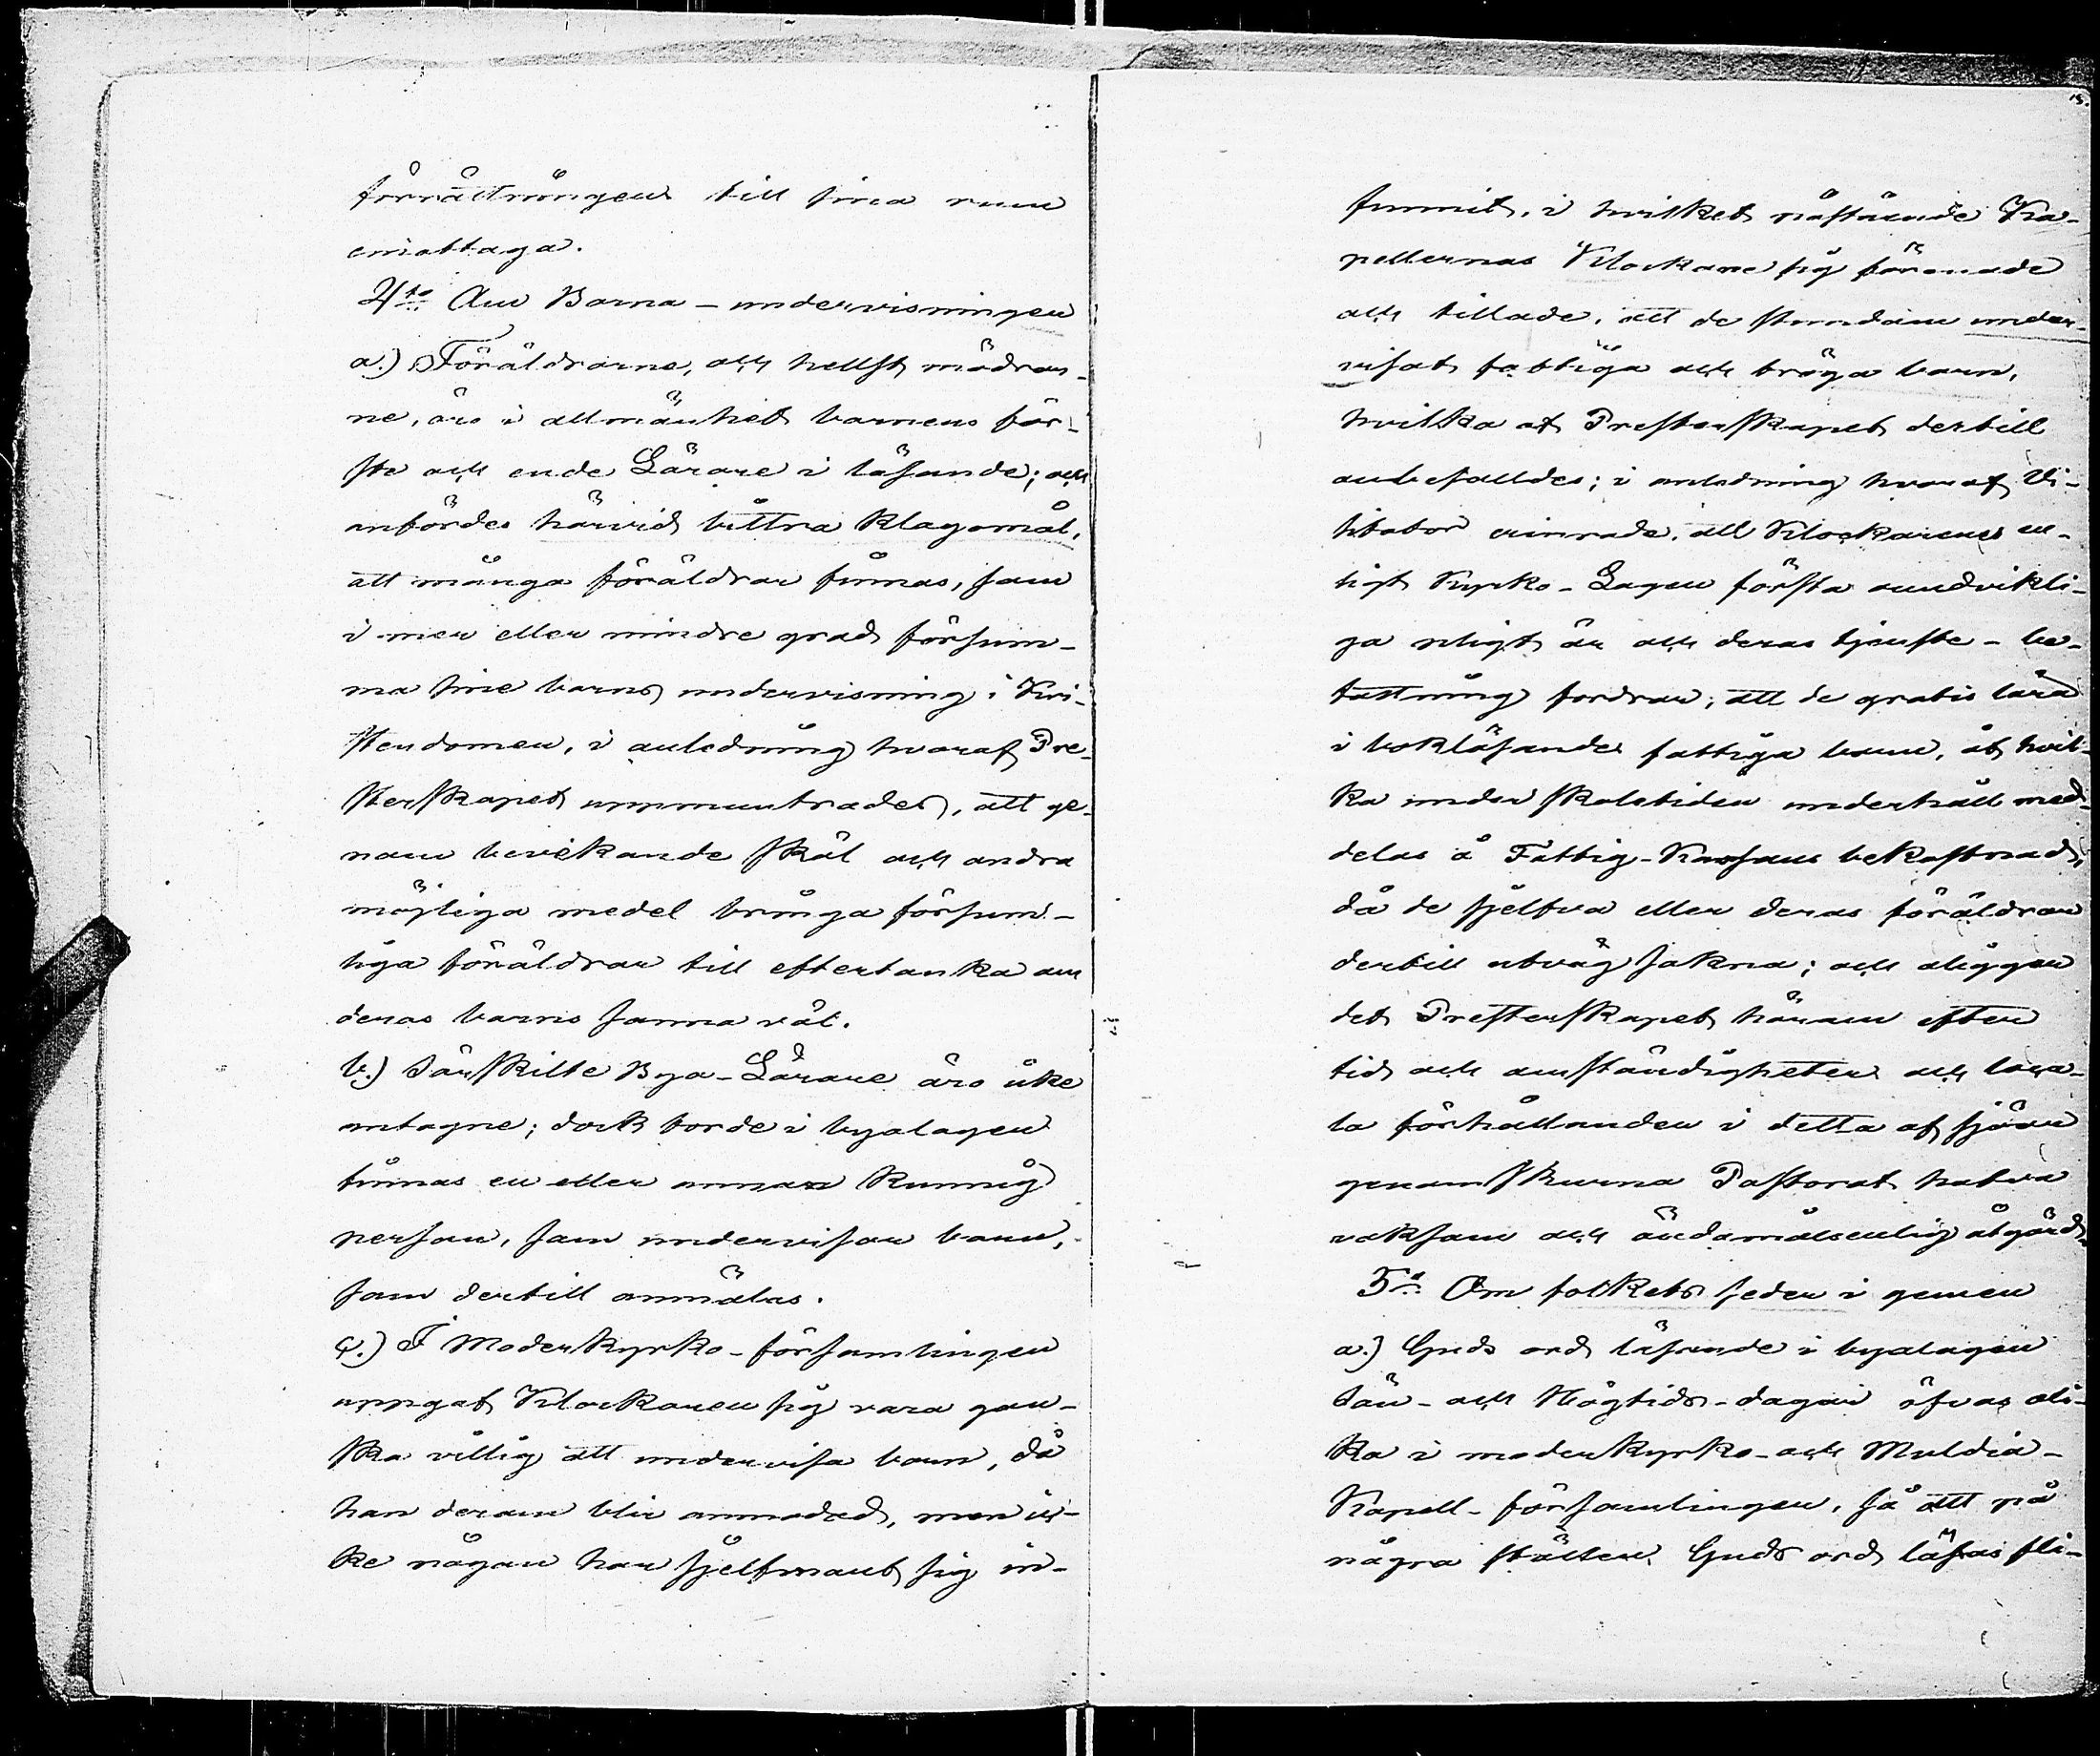 förrättningen till sina rum
emottaga.
4to Om Barna-undervisningen
a.) Föräldrarne, och hellst mödrar-
ne, äro i allmänhet barnens för-
ste och ende Lärare i läsande; och
anfördes härvid bittra klagomål,
att många föräldrar finnas, som
i mer eller mindre grad försum-
ma sine barns undervisning i Kri-
stendomen, i anledning hvaraf Pre-
sterskapet uppmuntrades, att ge-
nom bevekande skäl och andra
möjliga medel bringa försum-
liga föräldrar till eftertanka om
deras barns sanna väl.
b.) Särskilte Bya-Lärare äro icke
antagne; dock torde i byalagen
finnas en eller annan kunnig
person, som undervisar barn,
som dertill anmälas.
c.) I Moderkyrko-församlingen
uppgaf Klockaren sig vara gan-
ska villig att undervisa barn, då
han derom blir anmodad, men ic-
ke någon har sjelfmant sig in-
15.
funnit, i hvilket näst Ka-
pellernas Klockare sig förenade
och tillade, att de stundom under-
visat fattiga och tröga barn,
hvilka af Presterskapet dertill
anbefalldes; i anledning hvaraf Vi-
sitator erinrade, att Klockarenes en-
ligt Kyrko-Lagen första oundvikli-
ga pligt är och deras tjenste-be-
fattning fordrar, att de gratis lära
i bokläsande fattiga barn, åt hvil-
ka under skoletiden underhåll med-
delas å Fattig-Kassans bekostnad,
då de sjelfva eller deras föräldrar
dertill utväg sakna; och åligger
det Presterskapet härom efter
tid och omständigheter och loca-
la förhållanden i detta af sjöar
genomskurna Pastorat hafva
vaksam och ändamålsenlig åtgärd.
5to Om folkets seder i gemen
a.) Guds ord läsande i byalagen
Sön- och Högtids-dagar öfvas oli-
ka i moderkyrko- och Muldia-
Kapell-församlingen, så att på
några ställen Guds ord läses fli-